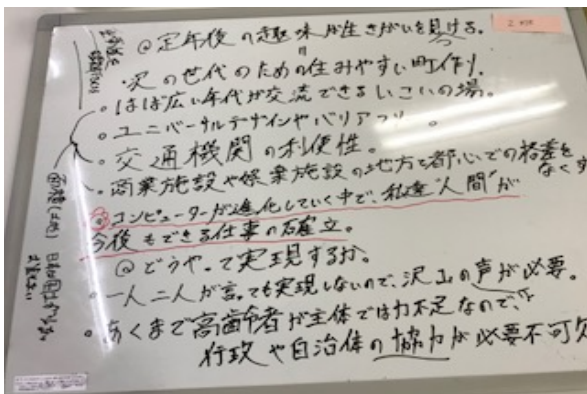 @定年後の趣味か生きがいを見つける。
〃
・次の世代のための住みやすい町作り。
。はば広い年代が交流できるいこいの場。
。ユニバーサルデザインやバリアフリー。
・交通機関の利便性。
・商業施設や娯楽施設の地方と都心での格差をなくす
コンピューターが進化していく中で、私達"人間"が
今後もできる仕事の確立。
@どうやって実現するか。
・一人二人が言っても実現しないので、沢山の声が必要。
・あくまで高齢者が主体では力不足なので、
行政や自治体の協力が必要不可欠